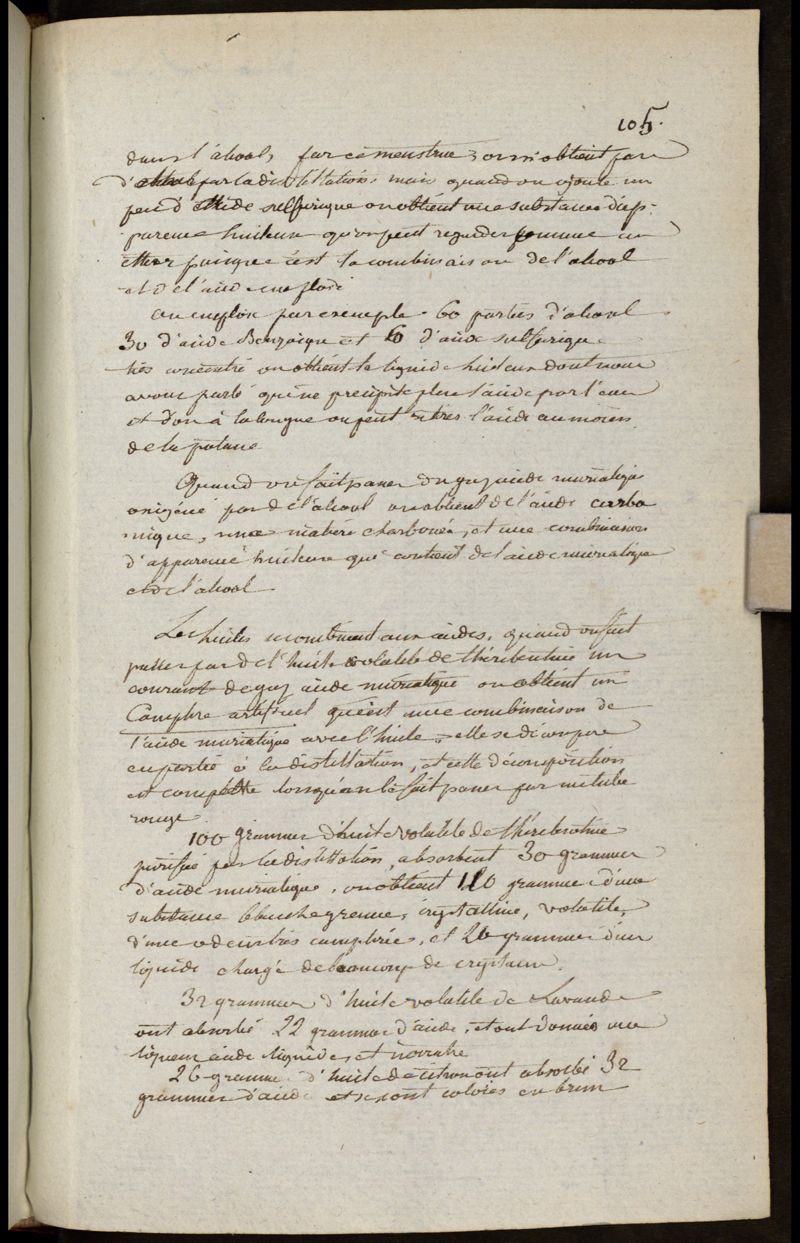 105.
dans l'alcool, par ce menstrue on n'obtient par
d' par la distillation, mais quand on ajoute un
peu d'acide sulfurique on obtient une substance d'ap-
parence huileuse qu'on peut regarder comme un
ether puisque c'est la combinaison de l'alcool
et de l'acide emploié
on emploie par exemple 60 parties d'alcool
30 d'acide Benzoique et 6 d'acide sulfurique
très concentré on obtient le liquide huileux dont nous
avons parlé qui ne precipite plus l'acide par l'eau
et d'on à la longue on peut l'acide au moien
de la potasse
Quand on fait passer du gaz acide muriatique
oxigéné par de l'alcool on obtient de l'acide carbo
nique, une matiere charbonée, et une combinaison
d'apparence huileuse qui contient de l'acide muriatique
et de l'alcool
Les huiles se combinent aux acides, quand on fait
passer par de l'huile volatile de théribentine un
courant de gaz acide muriatique on obtient un
Camphre artificiel qui est une combinaison de
l'acide muriatique avec l'huile, elle se décompose
en partie à la distillation, et cette décomposition
est complette lorsqu'on le fait passer par un tube
rouge
100 grammes d'huile volatile de théribentine
purifiée par la distillation, absorbent 30 grammes
d'acide muriatique, on obtient 110 grammes d'une
substance blanche grenue, crystalline, volatile,
d'une odeur très camphrée, et 20 grammes d'un
liquide chargé de beaucoup de crystaux.
32 grammes d'huile volatile de Lavande
ont absorbé 22 grammes d'acide, et ont donnés une
liqueur acide liquide et noiratre
26 grammes d'huile de citron ont absorbé 32
grammes d'acide et se sont colorés en brun